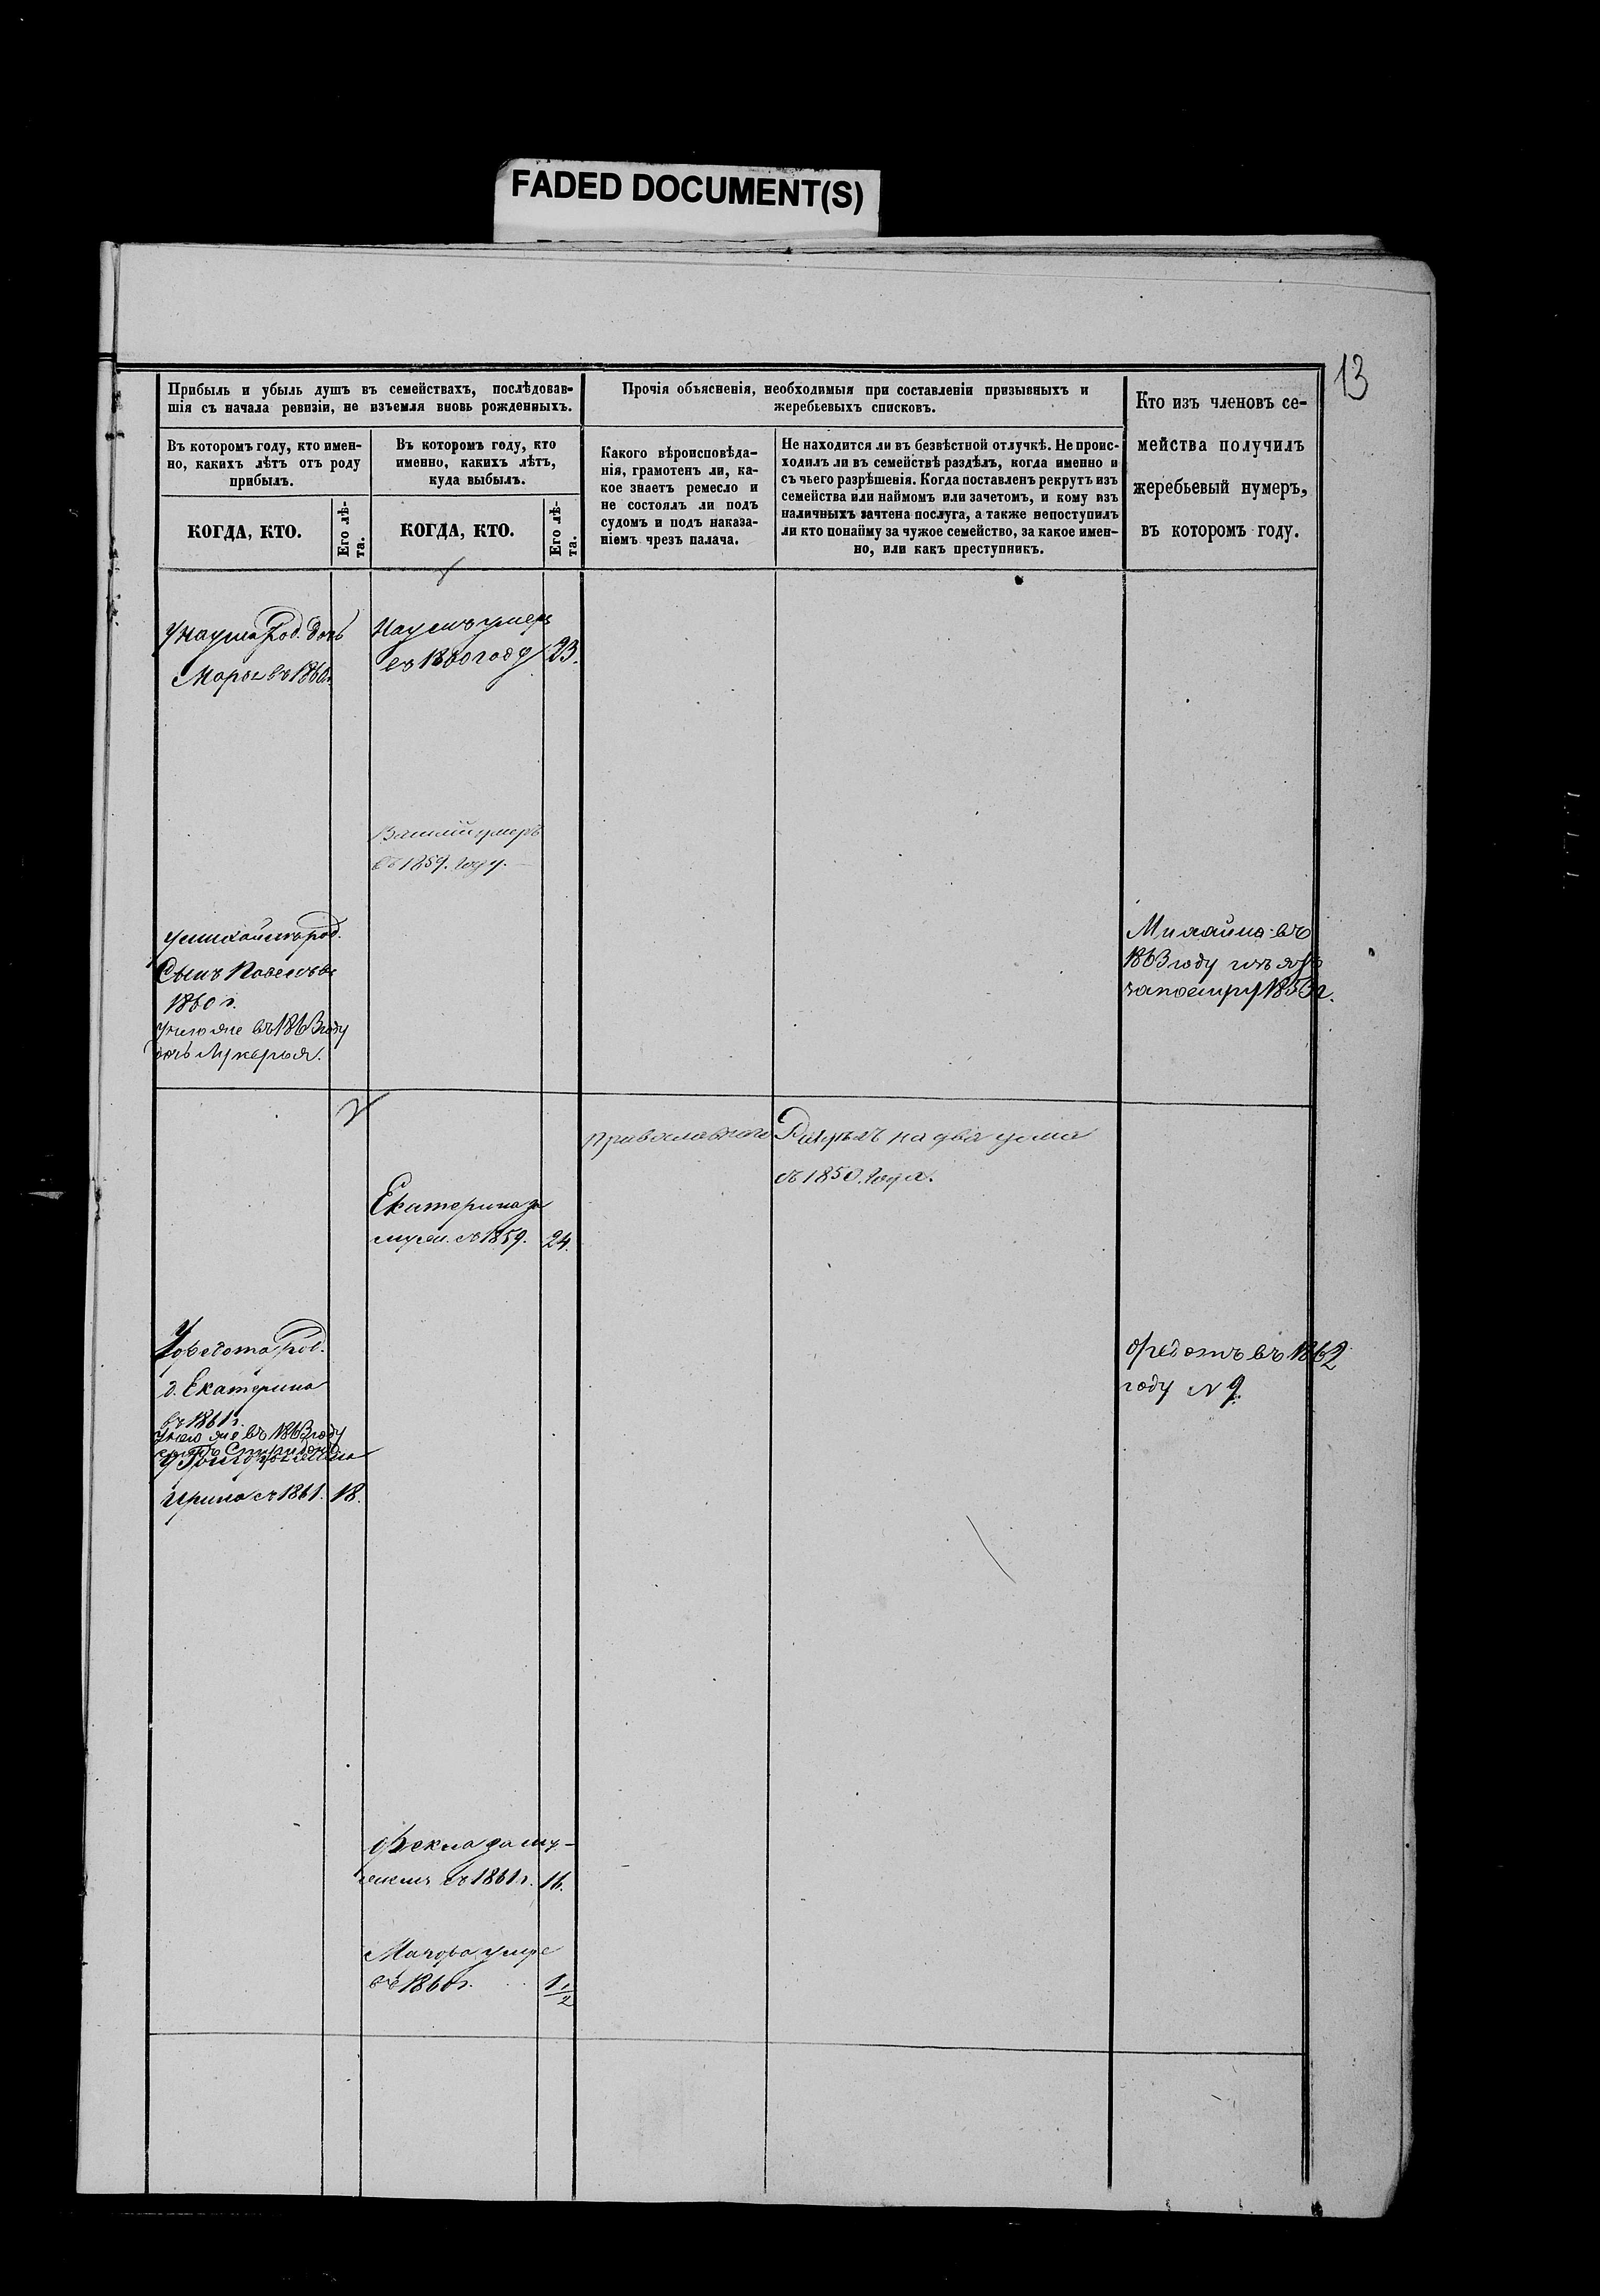 FADED DOCUMENT(S)
13
Прибыль и убыль душъ въ семействахъ, послѣдовав-
шія съ начала ревизіи, не изъемля вновь рожденныхъ.
Въ которомъ году, кто имен-
но, какихъ лѣтъ отъ роду
прибылъ.
КОГДА, КТО.
Его лѣ-
та.
Въ которомъ году, кто
именно, какихъ лѣтъ,
куда выбылъ.
КОГДА, КТО.
Его лѣ-
та.
Прочія объясненія, необходимыя при составленіи призывныхъ и
жеребьевыхъ списковъ.
Какого вѣроисповѣда-
нія, грамотенъ ли, ка-
кое знаетъ ремесло и
не состоялъ ли подъ
судомъ и подъ наказа-
ніемъ чрезъ палача.
Не находится ли въ безвѣстной отлучкѣ. Не проис-
ходилъ ли въ семействѣ раздѣлъ, когда именно и
съ чьего разрѣшенія. Когда поставленъ рекрутъ изъ
семейства или наймомъ или зачетомъ, и кому изъ
наличныхъ зачтена послуга, а также непоступилъ
ли кто понайму за чужое семейство, за какое имен-
но, или какъ преступникъ.
Кто изъ членовъ се-
мейства получилъ
жеребьевый нумеръ,
въ которомъ году.
У Наума Род. дочь
Марья въ 1860г.
Наумъ умеръ
въ 1860 году 23.
Василий умеръ
въ 1859. году.
род.
Сынъ
1860 г.
у него же въ 1863 году
дочь Лукерья.
въ
1863 году
1853г.
православнаго
на два
съ 1850. года.
Екатерина за
муж. въ 1859. 24.
У Федота род.
д. Екатерина
въ 1861 г.
У него же въ 1863 году
Ирина въ 1861. 18.
Федотъ въ 1862
году N 9.
Фекла заму-
въ 1861 г. 16.
умре
въ 1860 г. 1 1/2